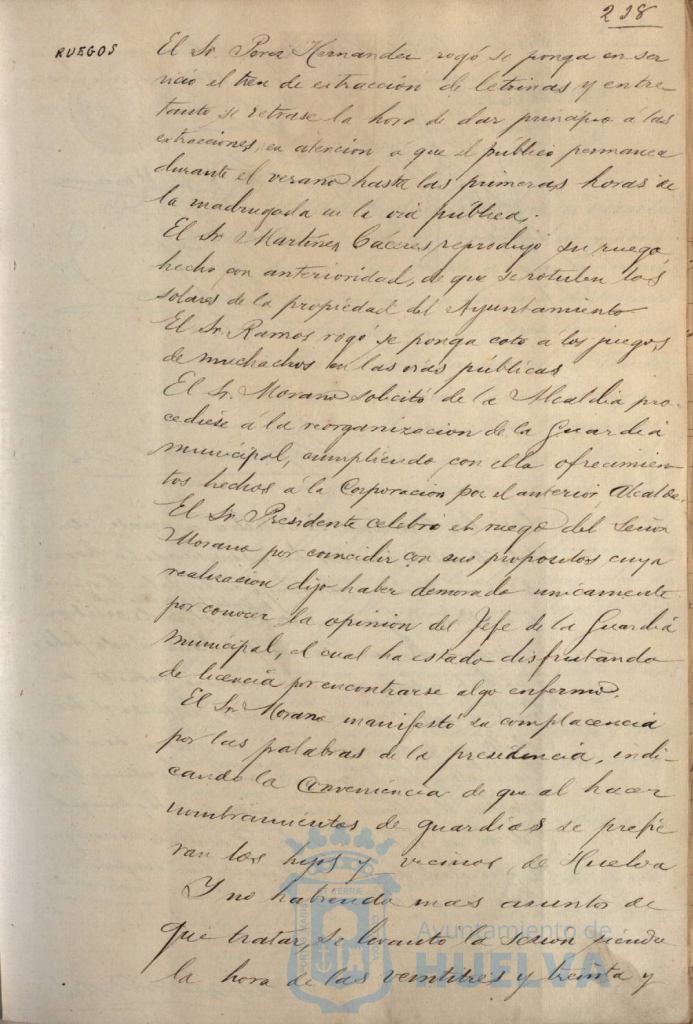 238
RUEGOS
El Sr. Perez Hernandez rogó se ponga en ser
vicio el tren de extracción de letrinas y entre-
tanto se retrase la hora de dar principio á las
extracciones, en atencion a que el público permanece
durante el verano hasta las primeras horas de
la madrugada en la via pública.
El Sr. Martinez Cáceres reprodujo su ruego,
hecho con anterioridad, de que se rotulen los
solares de la propiedad del Ayuntamiento
El Sr. Ramos rogó se ponga coto á los juegos
de muchachos en las vias públicas
El Sr. Morano solicitó de la Alcaldia pro-
cediese á la reorganizacion de la Guardia
municipal, cumpliendo con ella ofrecimien
tos hechos á la Corporacion por el anterior Alcalde.
El Sr. Presidente celebró el ruego del Señor
Morano por coincidir con sus propósitos cuya
realizacion dijo haber demorado unicamente
por conocer la opinion del Jefe de la Guardia
municipal, el cual ha estado disfrutando
de licencia por encontrarse algo enfermo.
El Sr. Morano manifestó su complacencia
por las palabras de la presidencia, indi-
cando la conveniencia de que al hacer
nombramientos de guardias se prefie
ran los hijos y vecinos de Huelva
Y no habiendo mas asuntos de
que tratar, se levanto la sesion siendo
la hora de las veintitres y treinta y
Ayuntamiento de
HUELVA